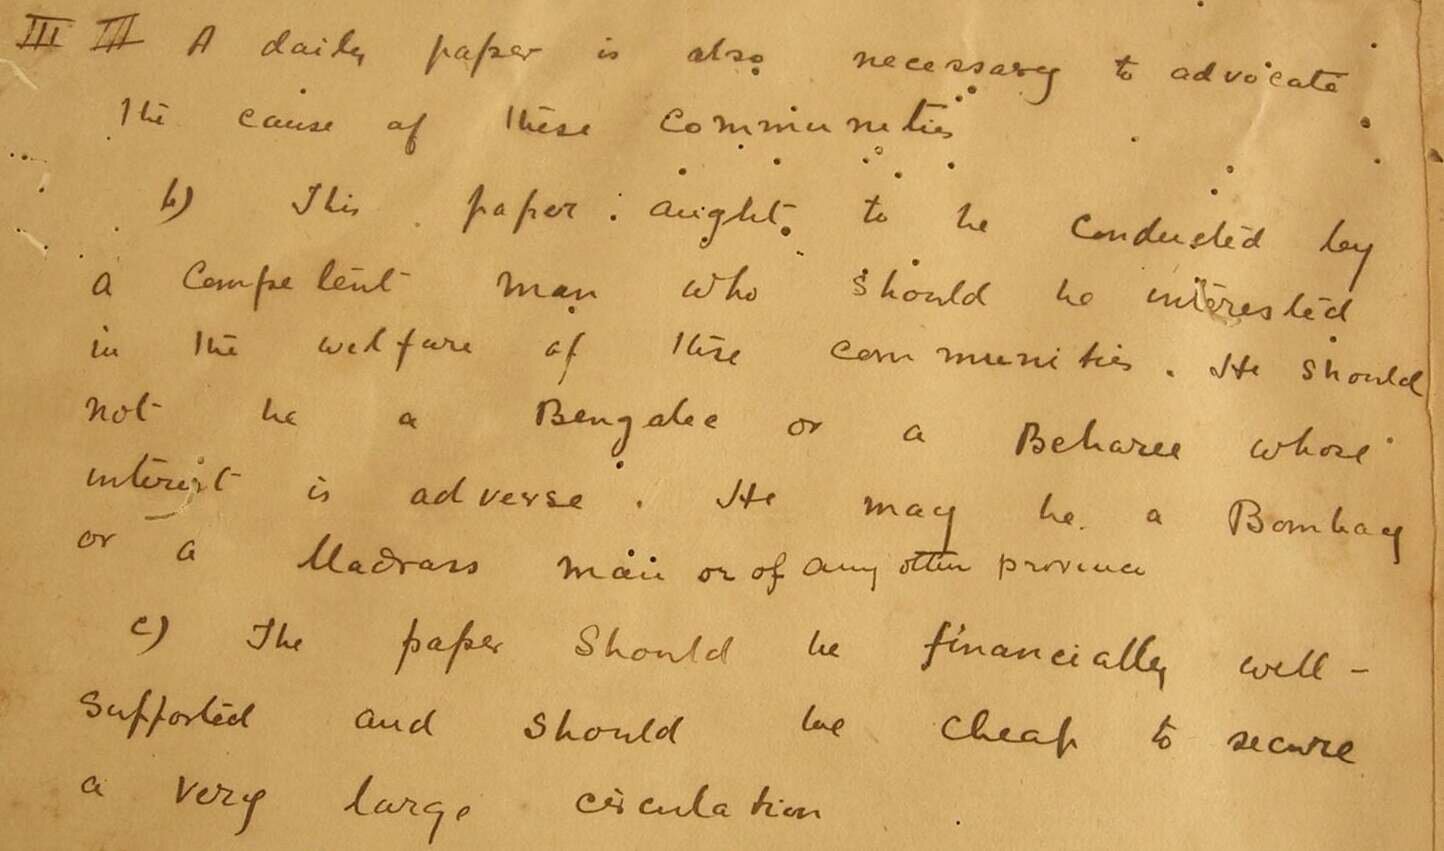 III III A daily paper is also necessary to advocate
the cause of these communities
b) This paper aught to be conducted by
a competent man who should be interested
in the welfare of these communities. He should
not be a Bengalee or a Beharee whose
interest is adverse. He may be a Bombay
or a Madrass man or of any other province
c) The paper should be financially well-
supported and should be cheap to secure
a very large circulation